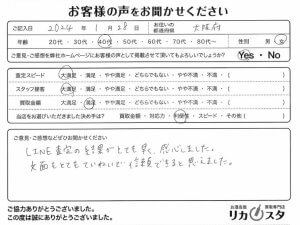 お客様の声をお聞かせください
ご記入日 2024年 1月 28日 お住いの都道府県 大阪府
年齢 20代・30代・40代・50代・60代・70代・80代〜 性別 男・女
ご意見・ご感想を弊社ホームページにお客様の声として掲載させて頂いてもよろしいでしょうか? Yes・No
査定スピード 大満足・満足・やや満足・どちらでもない・やや不満・不満・( )
スタッフ接客 大満足・満足・やや満足・どちらでもない・やや不満・不満・( )
買取金額 大満足・満足・やや満足・どちらでもない・やや不満・不満・( )
当店をお選びいただきました決め手は? 買取金額・対応力・利便性・スピード・その他( )
ご意見・ご感想などぜひお聞かせください
LINE査定の結果がとても早く、感心しました。
文面もとてもていねいで信頼できると思えました。
ご協力ありがとうございました。
この度は誠にありがとうございました。
お酒高価買取専門店
リカスタ